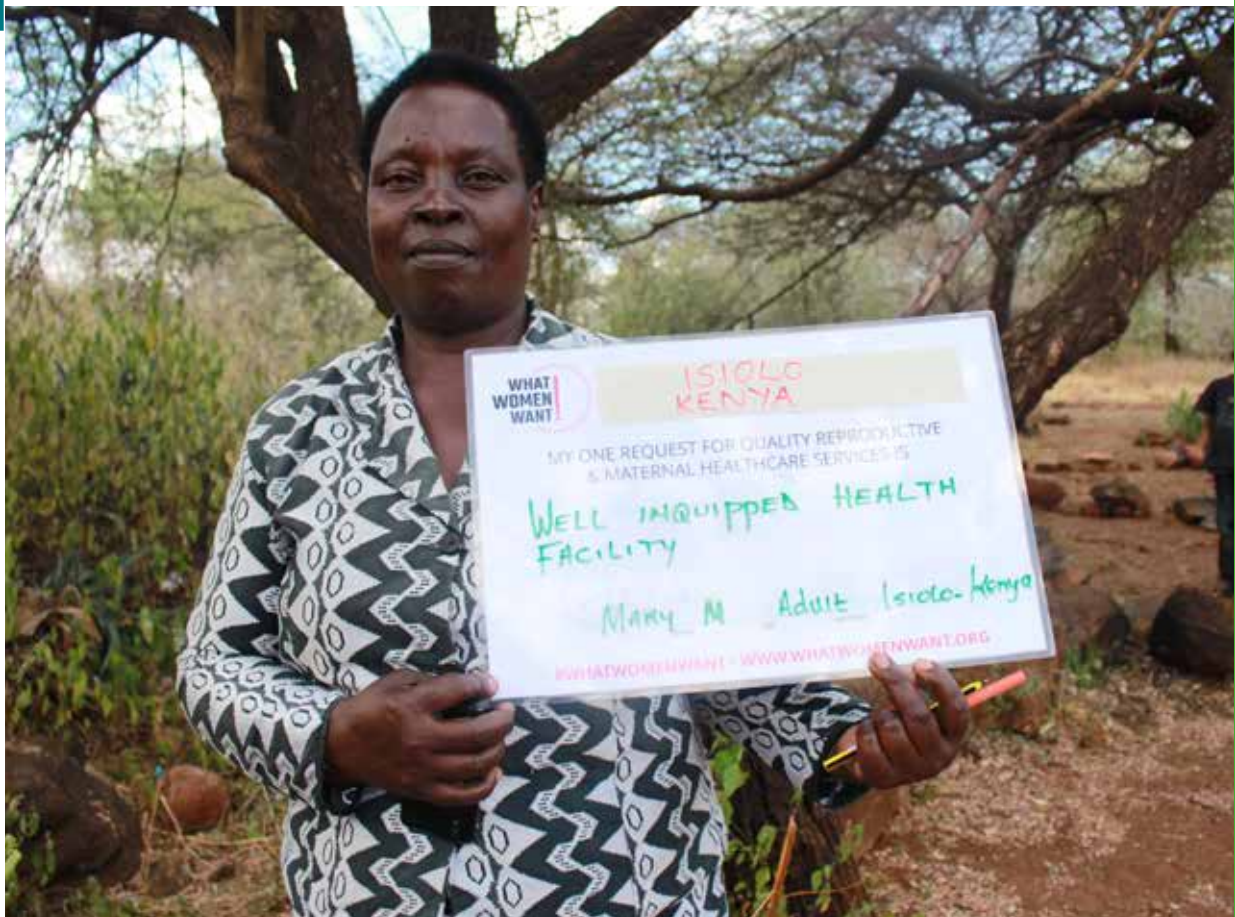 WHAT
WOMEN
WANT
ISIOLO
KENYA
MY ONE REQUEST FOR QUALITY REPRODUCTIVE
& MATERNAL HEALTHCARE SERVICES IS
WELL INQUIPPED HEALTH
FACILITY
MARY M Adult Isiolo-Kenya
#WHATWOMENWANT - WWW.WHATWOMENWANT.ORG